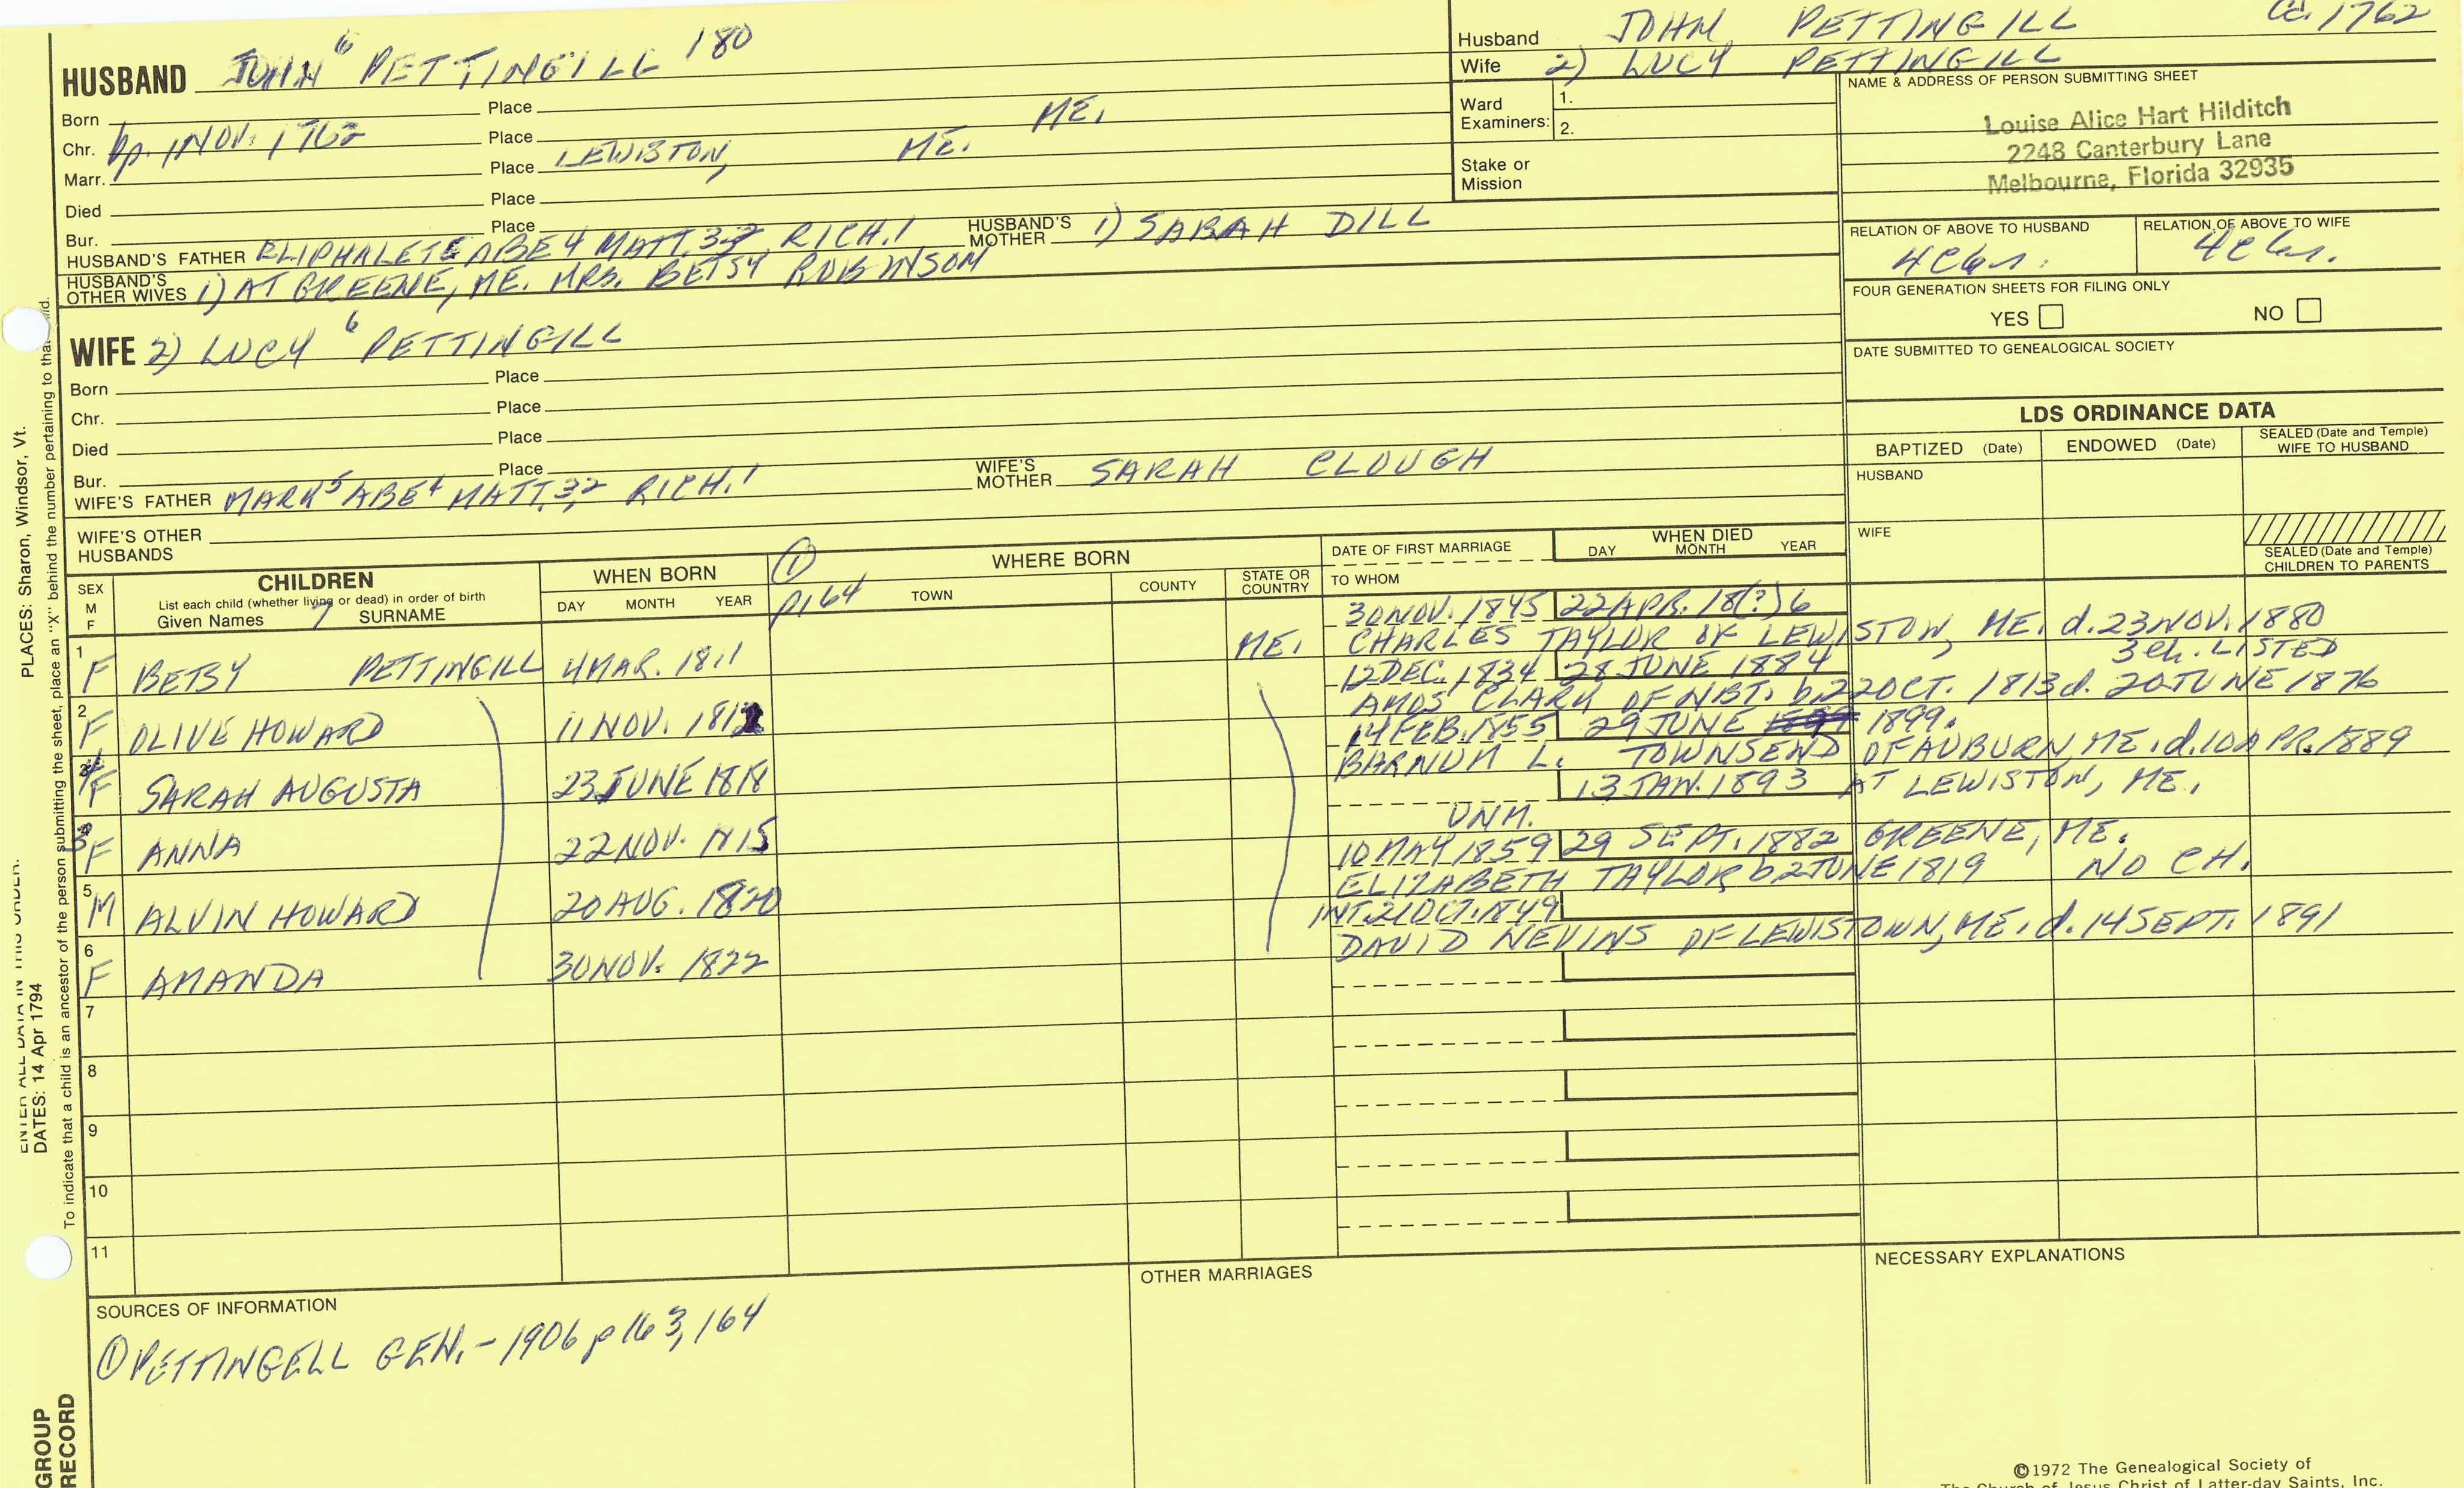 HUSBAND JOHN 6 PETTINGILL 180
Born Place
Chr. bp. 1 NOV. 1762 Place ME.
Marr. Place LEWISTON, ME.
Died Place
Bur. Place
HUSBAND'S FATHER ELIPHALET 5 ABE 4 MATT. 3, 2 RICH. 1 HUSBAND'S MOTHER 1) SARAH DILL
HUSBAND'S OTHER WIVES 1) AT GREENE, ME. MRS. BETSY ROBINSON
WIFE 2) LUCY 6 PETTINGILL
Born Place
Chr. Place
Died Place
Bur. Place
WIFE'S FATHER MARK 5 ABE 4 MATT. 3, 2 RICH. 1 WIFE'S MOTHER SARAH CLOUGH
WIFE'S OTHER HUSBANDS
Husband JOHN PETTINGILL Ca. 1762
Wife 2) LUCY PETTINGILL
Ward Examiners: 1.
2.
Stake or Mission
NAME & ADDRESS OF PERSON SUBMITTING SHEET
Louise Alice Hart Hilditch
2248 Canterbury Lane
Melbourne, Florida 32935
RELATION OF ABOVE TO HUSBAND RELATION OF ABOVE TO WIFE
FOUR GENERATION SHEETS FOR FILING ONLY
YES NO
DATE SUBMITTED TO GENEALOGICAL SOCIETY
LDS ORDINANCE DATA
BAPTIZED (Date) ENDOWED (Date) SEALED (Date and Temple) WIFE TO HUSBAND
HUSBAND
WIFE
SEALED (Date and Temple) CHILDREN TO PARENTS
SEX M F
CHILDREN
List each child (whether living or dead) in order of birth
Given Names 7 SURNAME
WHEN BORN
DAY MONTH YEAR
① p164
WHERE BORN
TOWN COUNTY STATE OR COUNTRY
DATE OF FIRST MARRIAGE
TO WHOM
WHEN DIED
DAY MONTH YEAR
30 NOV. 1845 22 APR. 18(?)6
1 F BETSY PETTINGILL 4 MAR. 1811 ME. CHARLES TAYLOR OF LEWISTON, ME. d. 23 NOV. 1880
3 ch. LISTED
12 DEC. 1834 28 JUNE 1884
2 F OLIVE HOWARD 11 NOV. 1812 AMOS CLARK OF NBT. b. 22 OCT. 1813 d. 20 JUNE 1876
14 FEB. 1855 29 JUNE 1899.
4 F SARAH AUGUSTA 23 JUNE 1818 BARNUM L. TOWNSEND OF AUBURN, ME. d. 10 APR. 1889
13 JAN. 1893 AT LEWISTON, ME.
3 F ANNA 22 NOV. 1815 UNM.
10 MAY 1859 29 SEPT. 1882 GREENE, ME.
5 M ALVIN HOWARD 20 AUG. 1820 ELIZABETH TAYLOR b 2 JUNE 1819 NO CH.
INT. 21 OCT. 1849
6 F AMANDA 30 NOV. 1822 DAVID NEVINS OF LEWISTOWN, ME. d. 14 SEPT. 1891
7
8
9
10
11
SOURCES OF INFORMATION
① PETTINGELL GEN. - 1906 p 163, 164
OTHER MARRIAGES
NECESSARY EXPLANATIONS
©1972 The Genealogical Society of
The Church of Jesus Christ of Latter-day Saints, Inc.
GROUP
RECORD
ENTER ALL DATA IN THIS ORDER:
DATES: 14 Apr 1794
PLACES: Sharon, Windsor, Vt.
To indicate that a child is an ancestor of the person submitting the sheet, place an "X" behind the number pertaining to that child.